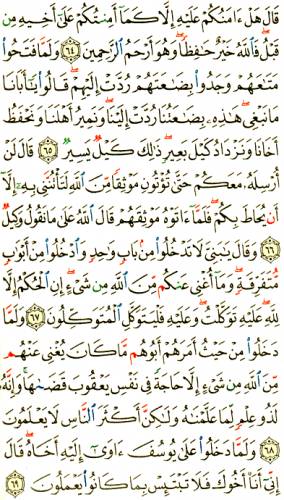 قَالَ هَلْ ءَامَنُكُمْ عَلَيْهِ إِلَّا كَمَآ أَمِنتُكُمْ عَلَىٰٓ أَخِيهِ مِن
قَبْلُ فَٱللَّهُ خَيْرٌ حَـٰفِظًا وَهُوَ أَرْحَمُ ٱلرَّٰحِمِينَ ٦٤ وَلَمَّا فَتَحُوا۟
مَتَـٰعَهُمْ وَجَدُوا۟ بِضَـٰعَتَهُمْ رُدَّتْ إِلَيْهِمْ قَالُوا۟ يَـٰٓأَبَانَا
مَا نَبْغِى هَـٰذِهِۦ بِضَـٰعَتُنَا رُدَّتْ إِلَيْنَا وَنَمِيرُ أَهْلَنَا وَنَحْفَظُ
أَخَانَا وَنَزْدَادُ كَيْلَ بَعِيرٍ ذَٰلِكَ كَيْلٌ يَسِيرٌ ٦٥ قَالَ لَنْ
أُرْسِلَهُۥ مَعَكُمْ حَتَّىٰ تُؤْتُونِ مَوْثِقًا مِّنَ ٱللَّهِ لَتَأْتُنَّنِى بِهِۦٓ إِلَّآ
أَن يُحَاطَ بِكُمْ فَلَمَّآ ءَاتَوْهُ مَوْثِقَهُمْ قَالَ ٱللَّهُ عَلَىٰ مَا نَقُولُ وَكِيلٌ
٦٦ وَقَالَ يَـٰبَنِىَّ لَا تَدْخُلُوا۟ مِنۢ بَابٍ وَٰحِدٍ وَٱدْخُلُوا۟ مِنْ أَبْوَٰبٍ
مُّتَفَرِّقَةٍ وَمَآ أُغْنِى عَنكُم مِّنَ ٱللَّهِ مِن شَىْءٍ إِنِ ٱلْحُكْمُ إِلَّا
لِلَّهِ عَلَيْهِ تَوَكَّلْتُ وَعَلَيْهِ فَلْيَتَوَكَّلِ ٱلْمُتَوَكِّلُونَ ٦٧ وَلَمَّا
دَخَلُوا۟ مِنْ حَيْثُ أَمَرَهُمْ أَبُوهُم مَّا كَانَ يُغْنِى عَنْهُم
مِّنَ ٱللَّهِ مِن شَىْءٍ إِلَّا حَاجَةً فِى نَفْسِ يَعْقُوبَ قَضَىٰهَا وَإِنَّهُۥ
لَذُو عِلْمٍ لِّمَا عَلَّمْنَـٰهُ وَلَـٰكِنَّ أَكْثَرَ ٱلنَّاسِ لَا يَعْلَمُونَ
٦٨ وَلَمَّا دَخَلُوا۟ عَلَىٰ يُوسُفَ ءَاوَىٰٓ إِلَيْهِ أَخَاهُ قَالَ
إِنِّىٓ أَنَا۠ أَخُوكَ فَلَا تَبْتَئِسْ بِمَا كَانُوا۟ يَعْمَلُونَ ٦٩